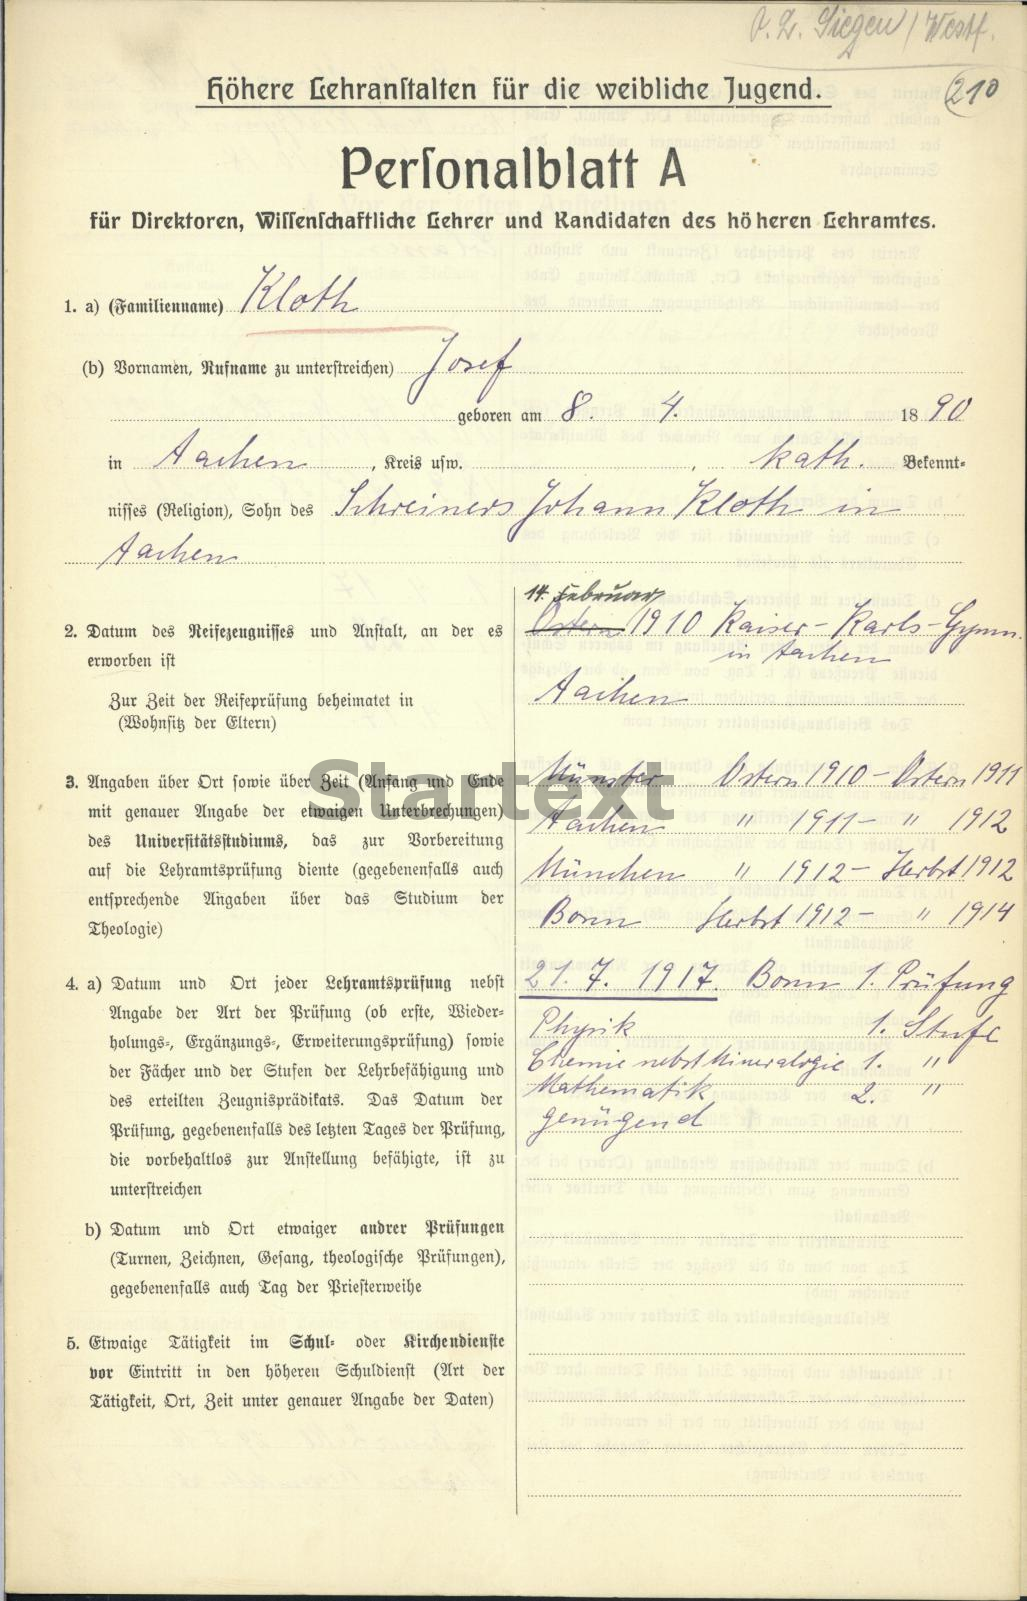 O. L. Siegen / Westf.
210
Höhere Lehranſtalten für die weibliche Jugend.
Perſonalblatt A
für Direktoren, Wiſſenſchaftliche Lehrer und Kandidaten des höheren Lehramtes.
1. a) (Familienname) Kloth
(b) Vornamen, Rufname zu unterſtreichen) Josef
geboren am 8. 4. 1890
in Aachen, Kreis uſw. , kath. Bekennt-
niſſes (Religion), Sohn des Schreiners Johann Kloth in
Aachen
14. Februar
2. Datum des Reifezeugniſſes und Anſtalt, an der es Ostern 1910 Kaiser-Karls-Gymn.
erworben iſt in Aachen
Zur Zeit der Reifeprüfung beheimatet in Aachen
(Wohnſitz der Eltern)
3. Angaben über Ort ſowie über Zeit (Anfang und Ende Münster Ostern 1910 – Ostern 1911
mit genauer Angabe der etwaigen Unterbrechungen) Aachen " 1911 – " 1912
Startext
des Univerſitätsſtudiums, das zur Vorbereitung
auf die Lehramtsprüfung diente (gegebenenfalls auch München " 1912 – Herbst 1912
entſprechende Angaben über das Studium der Bonn Herbst 1912 – " 1914
Theologie)
4. a) Datum und Ort jeder Lehramtsprüfung nebſt 21. 7. 1917. Bonn 1. Prüfung
Angabe der Art der Prüfung (ob erſte, Wieder- Physik 1. Stufe
holungs-, Ergänzungs-, Erweiterungsprüfung) ſowie
der Fächer und der Stufen der Lehrbefähigung und Chemie nebst Mineralogie 1. "
des erteilten Zeugnisprädikats. Das Datum der Mathematik 2. "
Prüfung, gegebenenfalls des letzten Tages der Prüfung, genügend
die vorbehaltlos zur Anſtellung befähigte, iſt zu
unterſtreichen
b) Datum und Ort etwaiger andrer Prüfungen
(Turnen, Zeichnen, Geſang, theologiſche Prüfungen),
gegebenenfalls auch Tag der Prieſterweihe
5. Etwaige Tätigkeit im Schul- oder Kirchendienſte
vor Eintritt in den höheren Schuldienſt (Art der
Tätigkeit, Ort, Zeit unter genauer Angabe der Daten)